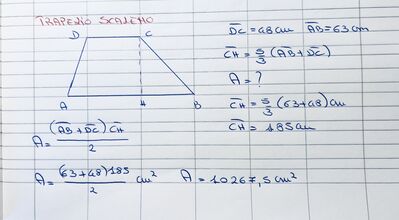 TRAPEZIO SCALENO
D C
A H B
D̅C̅ = 48 cm A̅B̅ = 63 cm
C̅H̅ = 5/3 (A̅B̅ + D̅C̅)
A = ?
C̅H̅ = 5/3 (63+48) cm
C̅H̅ = 185 cm
A = (A̅B̅ + D̅C̅) C̅H̅ / 2
A = (63+48) 185 / 2 cm² A = 10267,5 cm²